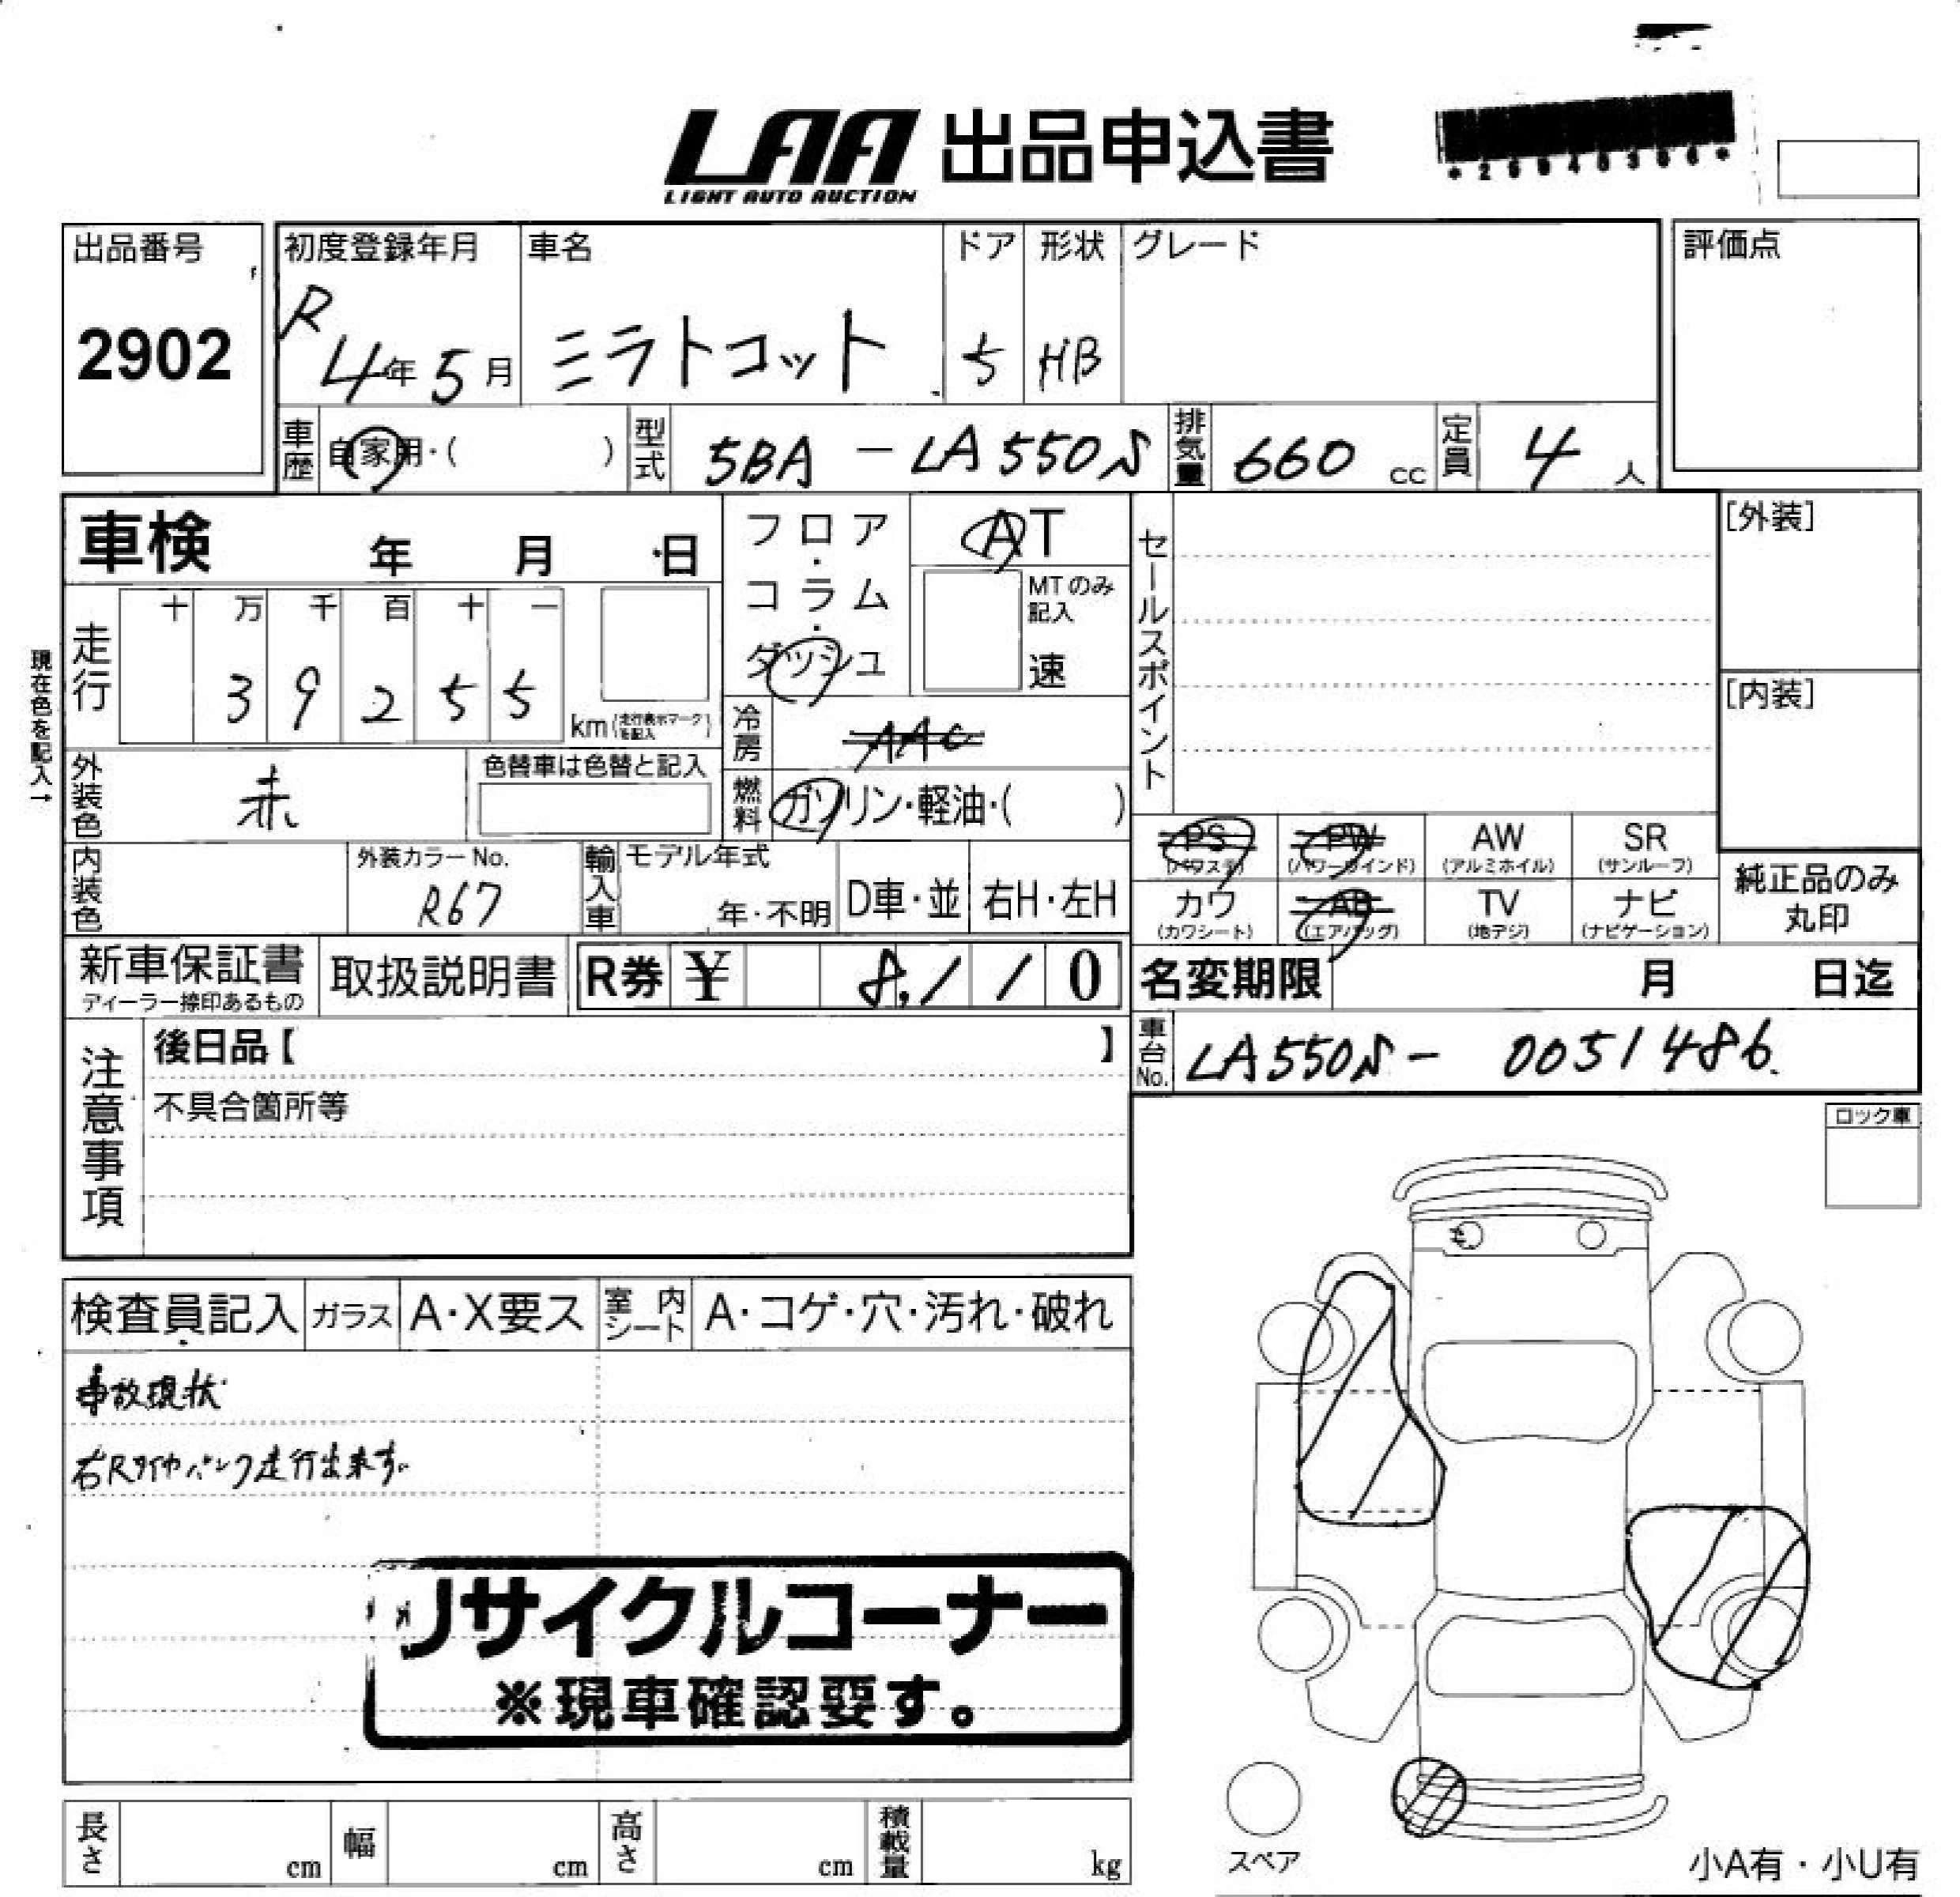 LAA 出品申込書
LIGHT AUTO AUCTION
*26940306*
出品番号
2902
初度登録年月
R
4年5月
車名
ミラトコット
ドア
5
形状
HB
グレード
評価点
車歴
自家用・( )
型式
5BA-LA550S
排気量
660 cc
定員
4 人
車検 年 月 日
フロア・コラム・ダッシュ
AT
MTのみ記入
速
セールスポイント
[外装]
[内装]
現在色を記入→
走行
十 万 千 百 十 一
3 9 2 5 5
km(走行表示マークを記入)
冷房
AAC
外装色
赤
色替車は色替と記入
燃料
ガソリン・軽油・( )
PS (パワステ)
PW (パワーウインド)
AW (アルミホイル)
SR (サンルーフ)
カワ (カワシート)
AB (エアバッグ)
TV (地デジ)
ナビ (ナビゲーション)
純正品のみ丸印
内装色
外装カラーNo.
R67
輸入車
モデル年式
年・不明
D車・並
右H・左H
新車保証書
ディーラー捺印あるもの
取扱説明書
R券 ¥ 8,//0
名変期限 月 日迄
注意事項
後日品【 】
不具合箇所等
車台No.
LA550S- 0051486
ロック車
検査員記入
ガラス
A・X要ス
室内シート
A・コゲ・穴・汚れ・破れ
事故現状
右Rタイヤパンク走行出来ず。
リサイクルコーナー
※現車確認要す。
長さ cm
幅 cm
高さ cm
積載量 kg
スペア
小A有・小U有